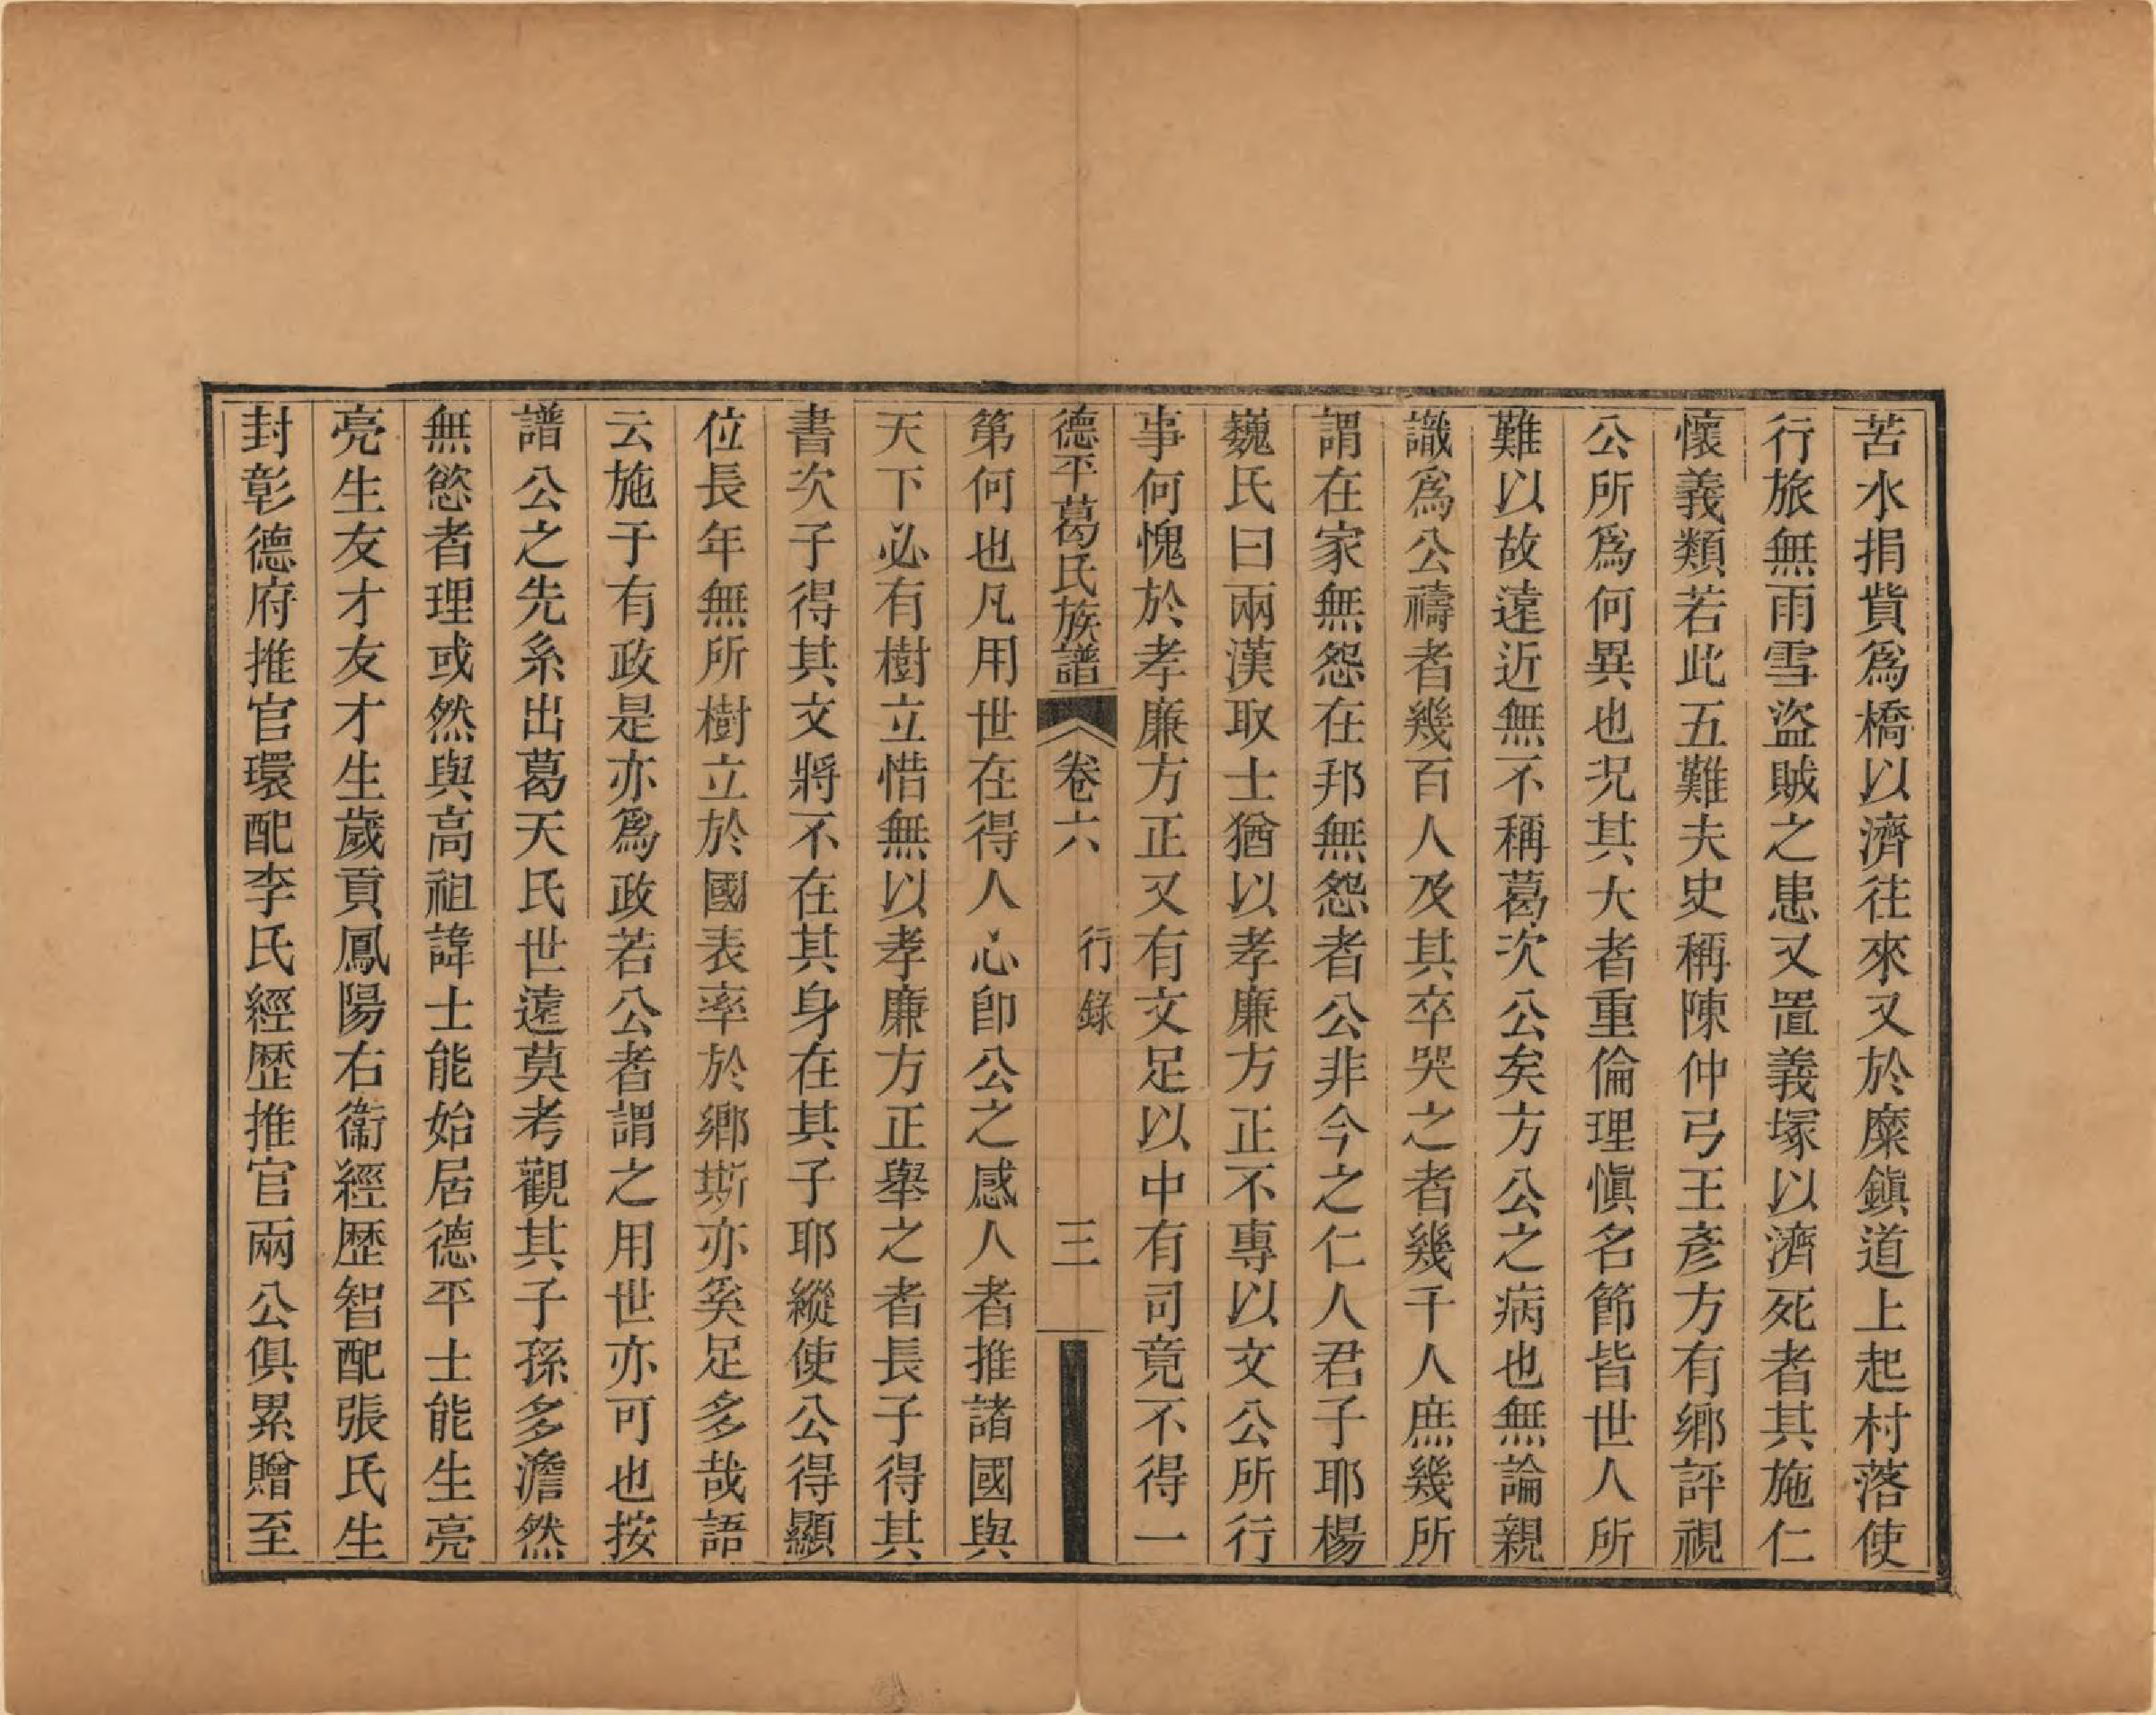 苦水捐貲爲橋以濟往來又於糜鎭道上起村落使
行旅無雨雪盜賊之患又置義塚以濟死者其施仁
懷義類若此五難夫史稱陳仲弓王彥方有鄕評視
公所爲何異也況其大者重倫理愼名節皆世人所
難以故遠近無不稱葛次公矣方公之病也無論親
識爲公禱者幾百人及其卒哭之者幾千人庶幾所
謂在家無怨在邦無怨者公非今之仁人君子耶楊
巍氏曰兩漢取士猶以孝廉方正不專以文公所行
事何愧於孝廉方正又有文足以中有司竟不得一
德平葛氏族譜 卷六 行錄 三
第何也凡用世在得人心卽公之感人者推諸國與
天下必有樹立惜無以孝廉方正舉之者長子得其
書次子得其文將不在其身在其子耶縱使公得顯
位長年無所樹立於國表率於鄕斯亦奚足多哉語
云施于有政是亦爲政若公者謂之用世亦可也按
譜公之先系出葛天氏世遠莫考觀其子孫多澹然
無慾者理或然與高祖諱士能始居德平士能生亮
亮生友才友才生歲貢鳳陽右衞經歷智配張氏生
封彰德府推官環配李氏經歷推官兩公俱累贈至